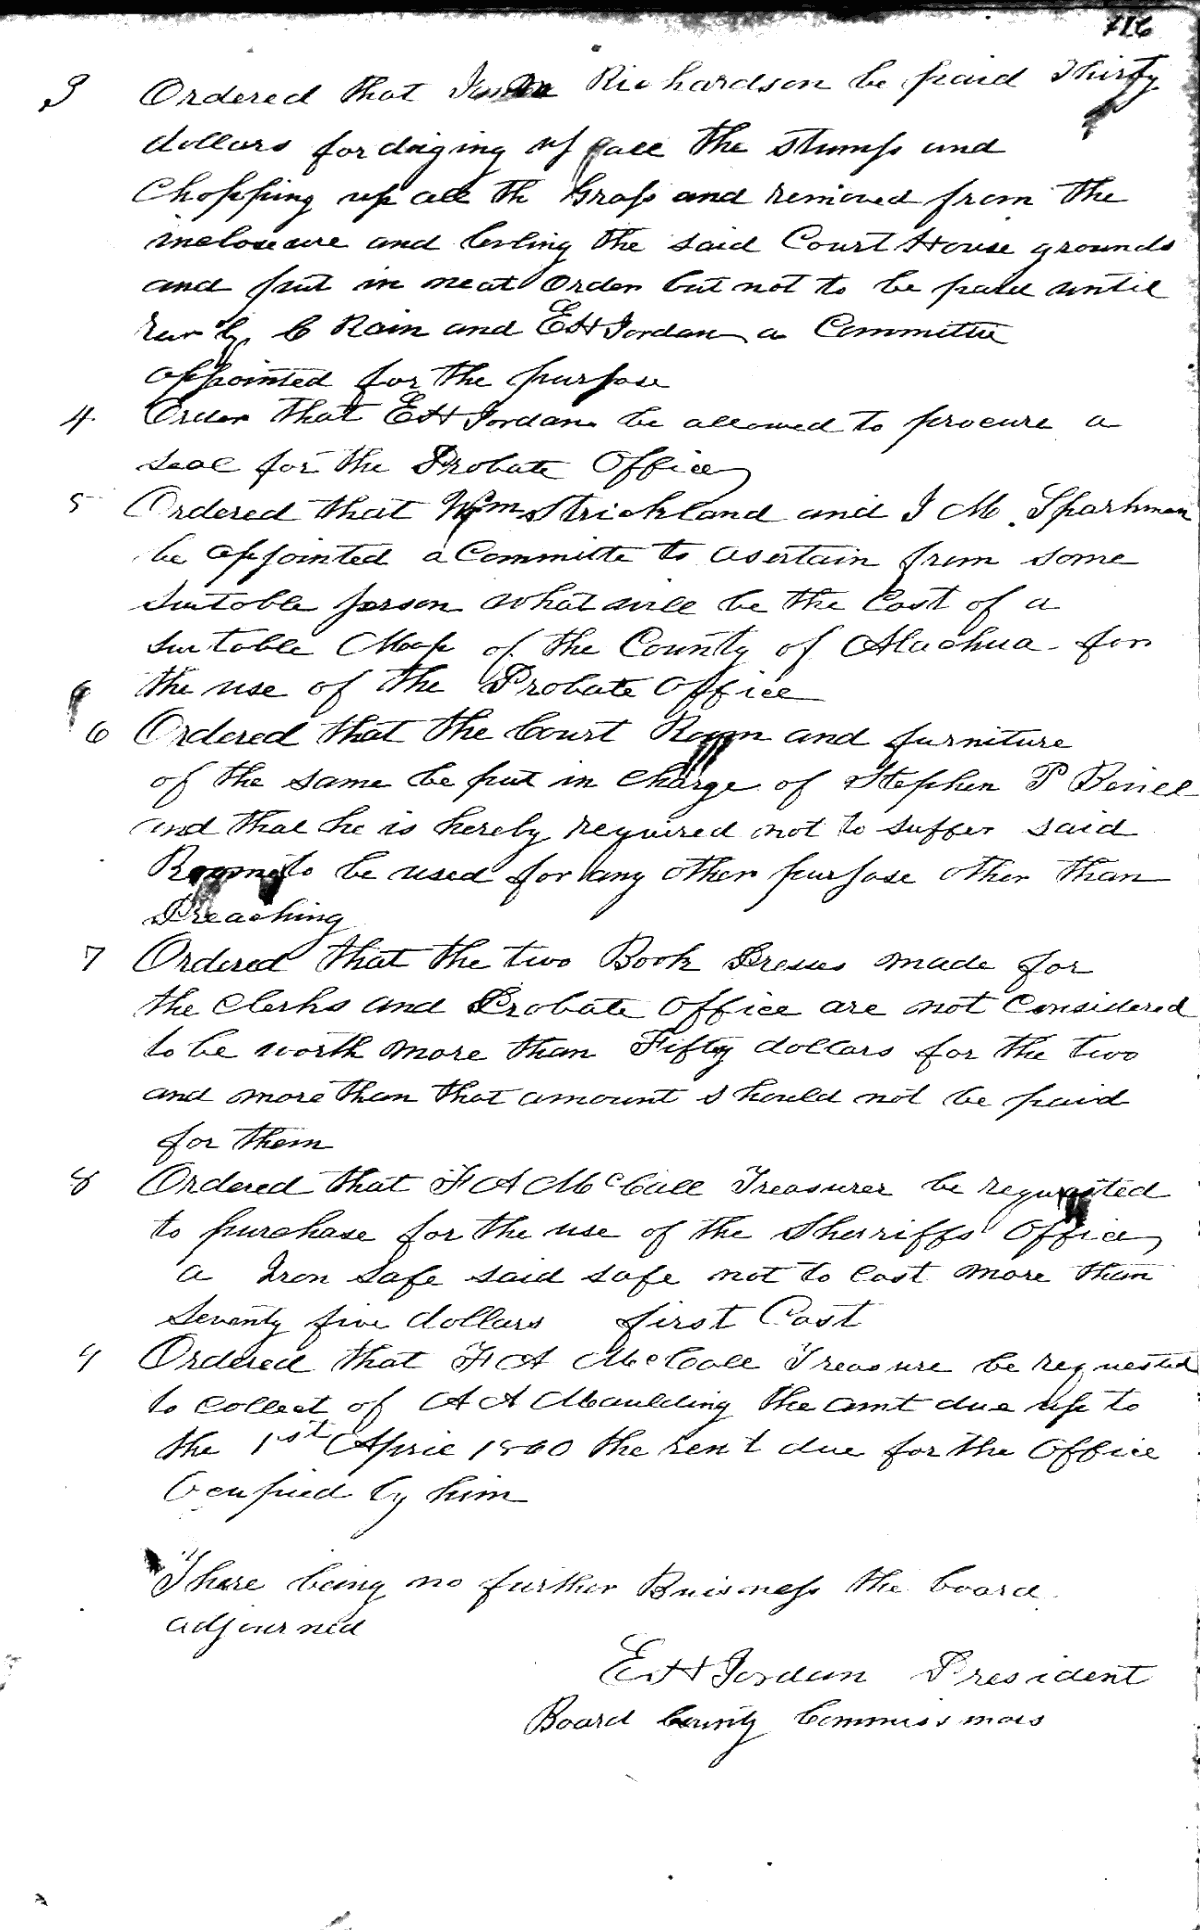 716
3 Ordered that Richardson be paid Thirty
dollars for diging up all the stumps and
Chopping up all th Grass and removed from the
inclosure and levling the said Court House grounds
and put in neat Order but not to be paid until
C Rain and E H Jordan a Committe
appointed for the purpose
4 Order that E H Jordan be allowed to procure a
seal for the Probate Office
5 Ordered that Wm Strickland and J M Sparkman
be appointed a Committe to asertain from some
suitable person what will be the Cost of a
suitable Map of the County of Alachua for
the use of the Probate Office
6 Ordered that the Court Room and furniture
of the same be put in charge of Stephen P
and that he is hereby required not to suffer said
Room to be used for any other purpose other than
Preaching
7 Ordered that the two Book Presses made for
the Clerks and Probate Office are not Considered
to be worth more than Fifty dollars for the two
and more than that amount should not be paid
for them
8 Ordered that F A McCall Treasurer be requested
to purchase for the use of the Sherriffs Office
a Iron Safe said safe not to Cost more than
Seventy five dollars first Cost
9 Ordered that F A McCall Treasure be requested
to collect of A A Maulding the amt due up to
the 1st April 1860 the rent due for the Office
Ocupied by him
There being no further Buisness the board
adjourned
E H Jordan President
Board County Commissiners